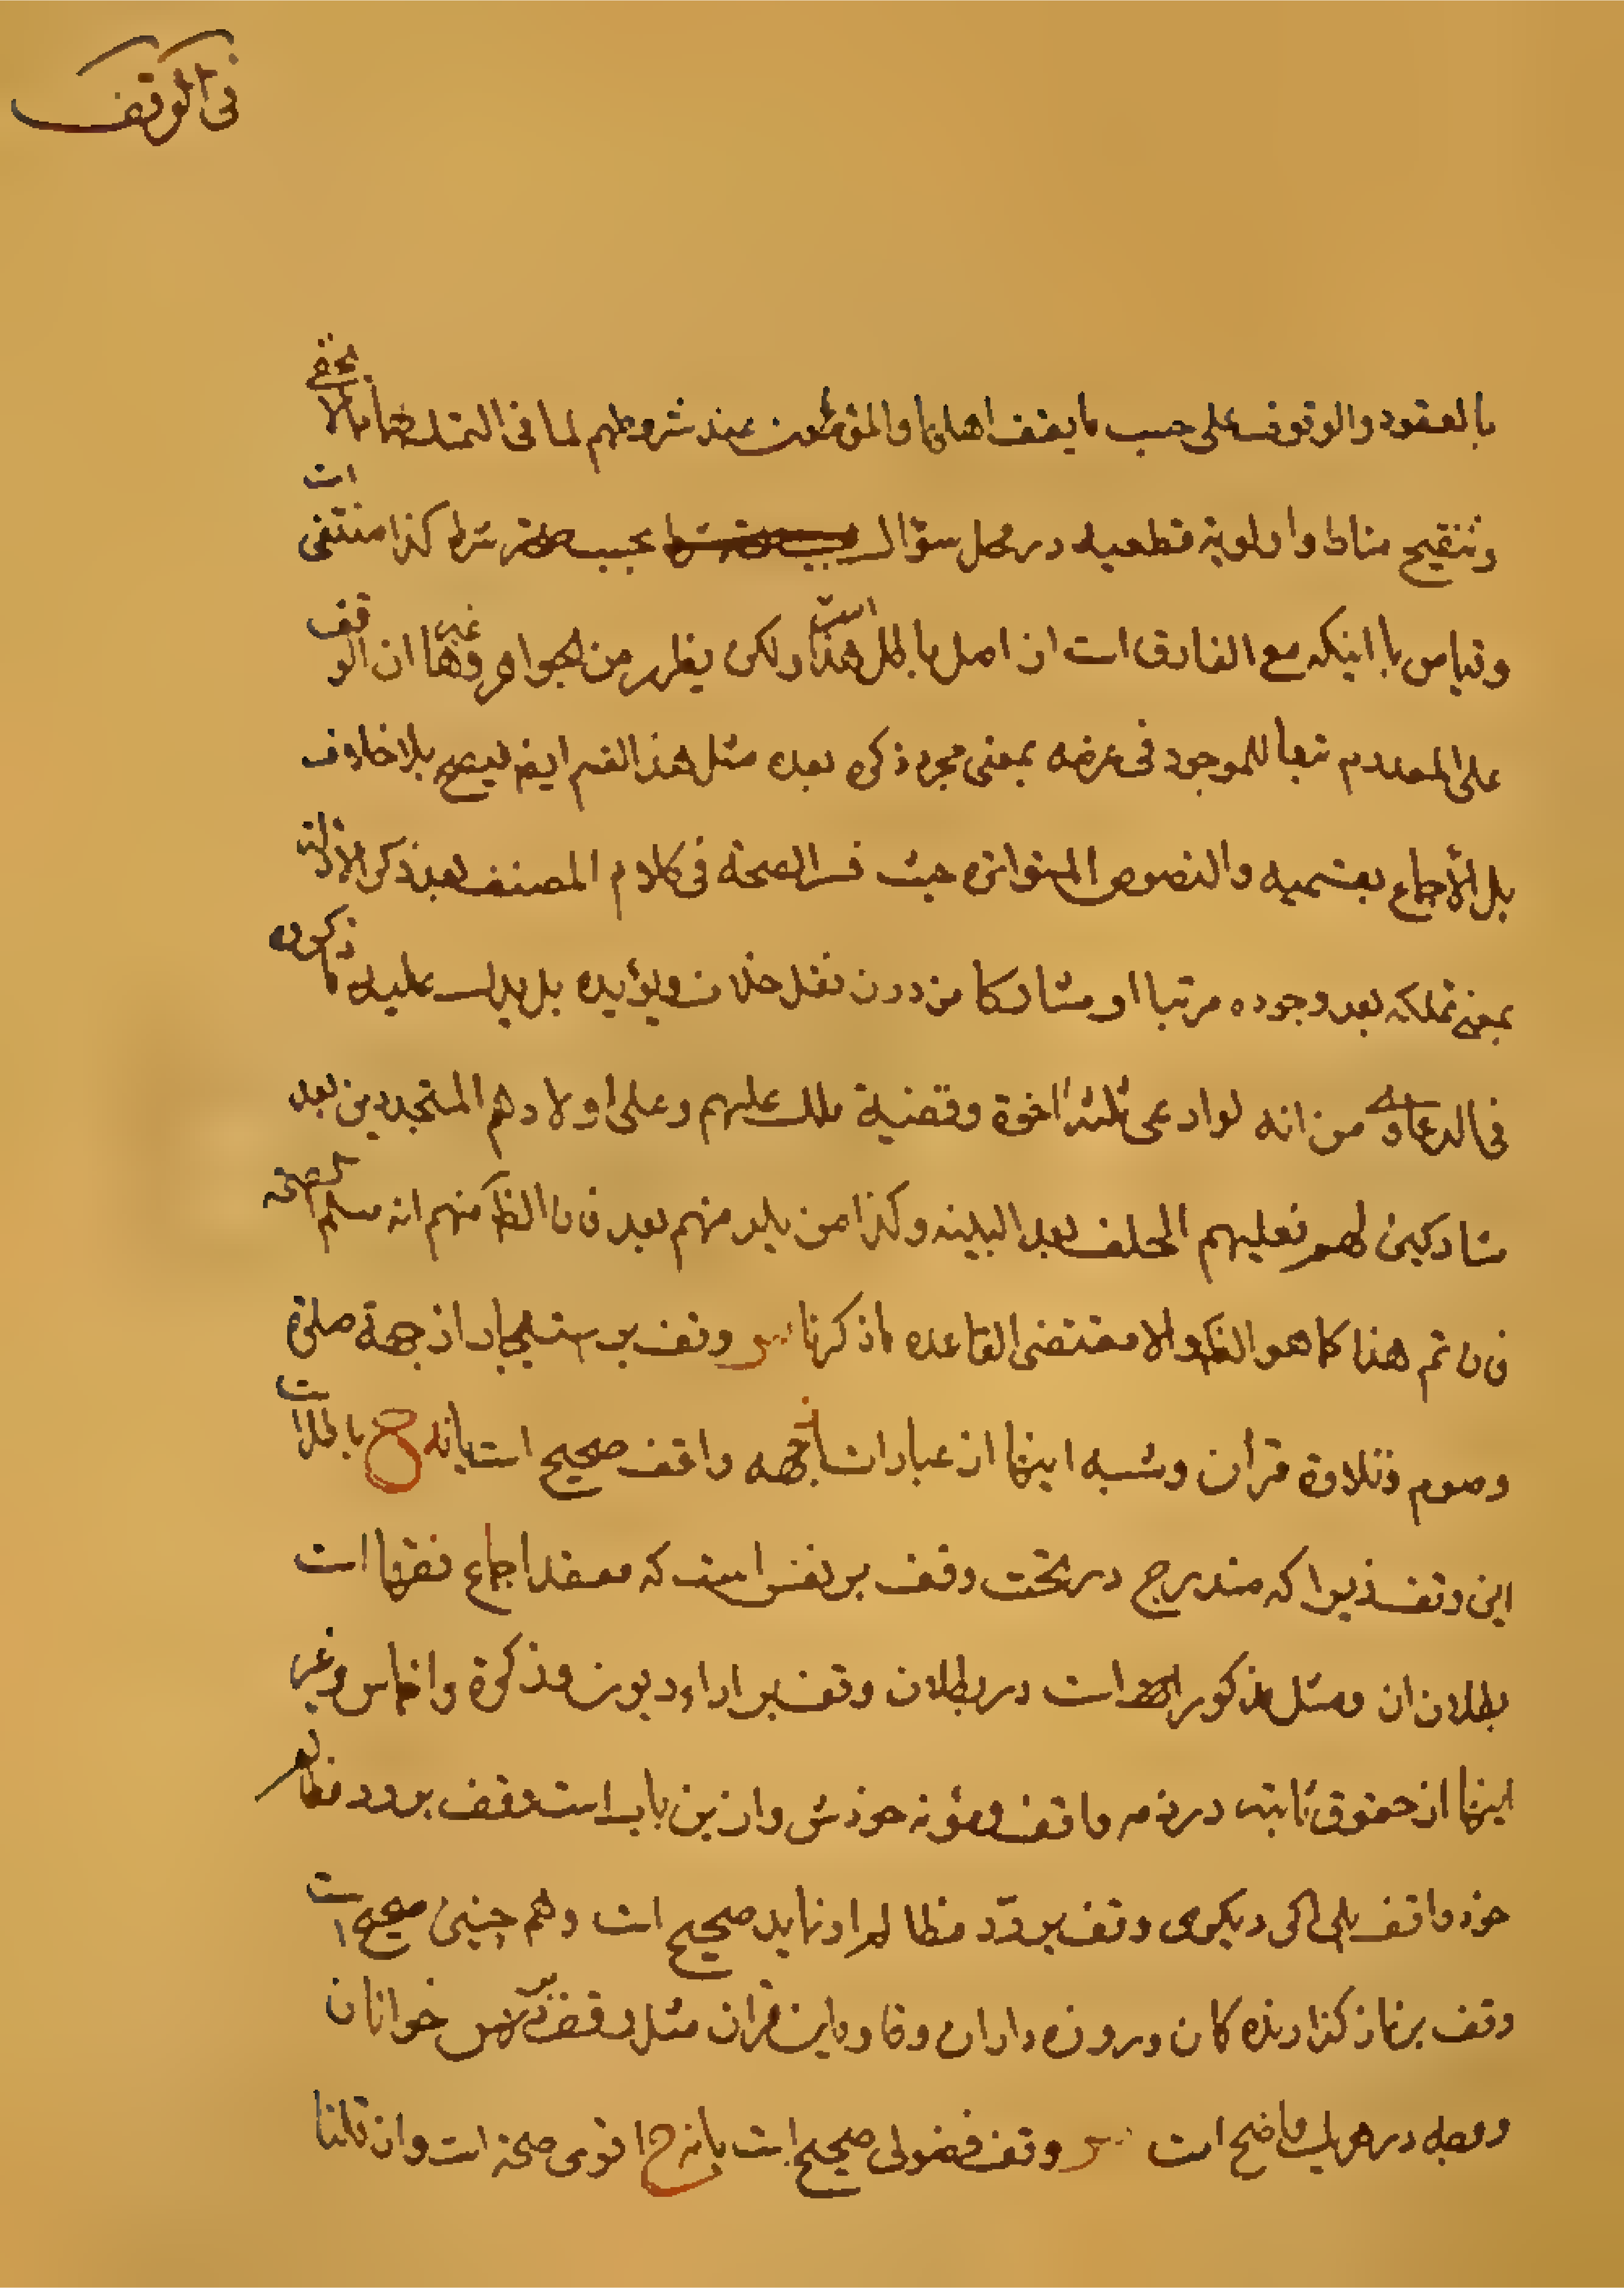 فی الوقف
بالعقود والوقوف علی حسب ما یقف اهلها والمؤمنون عند شروطهم لما فی التمسک بهما مالا یخفی
وتنقیح مناط واولویة قطعیه در محل سؤال بحسب شرط کذا منتفی است
وقیاس با اینکه مع الفارق است از اصل باطل هذا ولکن یظهر من الجواهر وغیرها ان الوقف
علی المعدوم تبعا للموجود فی عرضه بمعنی مجرد ذکره بعده مثل هذا القسم ایضا یصح بلا خلاف
بل الأجماع بقسمیه والنصوص المتواتره حیث فسر الصحة فی کلام المصنف بعد ذکر
بمعنی تملکه بعد وجوده مرتبا او مشارکا من دون نقل خلاف ویؤیده بل یدل علیه ما ذکروه
فی الدعاوی من انه لو ادعی ثلثة اخوة وقفیة ملک علیهم وعلی اولادهم المتجددین بعد
مشارکین لهم فعلیهم الحلف بعد البینه وکذا من یلد منهم بعد فان الظ منهم انه مسلم الصحه
فان تم هذا کما هو الظ والا مقتضی القاعده ما ذکرنا س وقف بر استیجار از جهة صلوة
وصوم وتلاوة قران وشبه اینها از عبادات بجهه واقف صحیح است یا نه ج باطل است
این وقف زیرا که مندرج در تحت وقف بر نفس است که معقد اجماع فقها است
بطلان ان ومثل مذکور است در بطلان وقف بر اداء دیون وذکوة واخماس وغیر
اینها از حقوق ثابته در ذمه واقف ومؤنه خودش وازین باب است وقف بر رد مظالم
خود واقف بلی اکر دیکری وقف بر ردّ مظالم او نماید صحیح است وهم چنین صحیح است
وقف بر نماز کذارنده کان وروزه داران وقاریان قران مثل وقف بر درس خوانان
ووجه در هر یک واضح است س وقف فضولی صحیح است یا نه ج اقوی صحة است وان قلنا